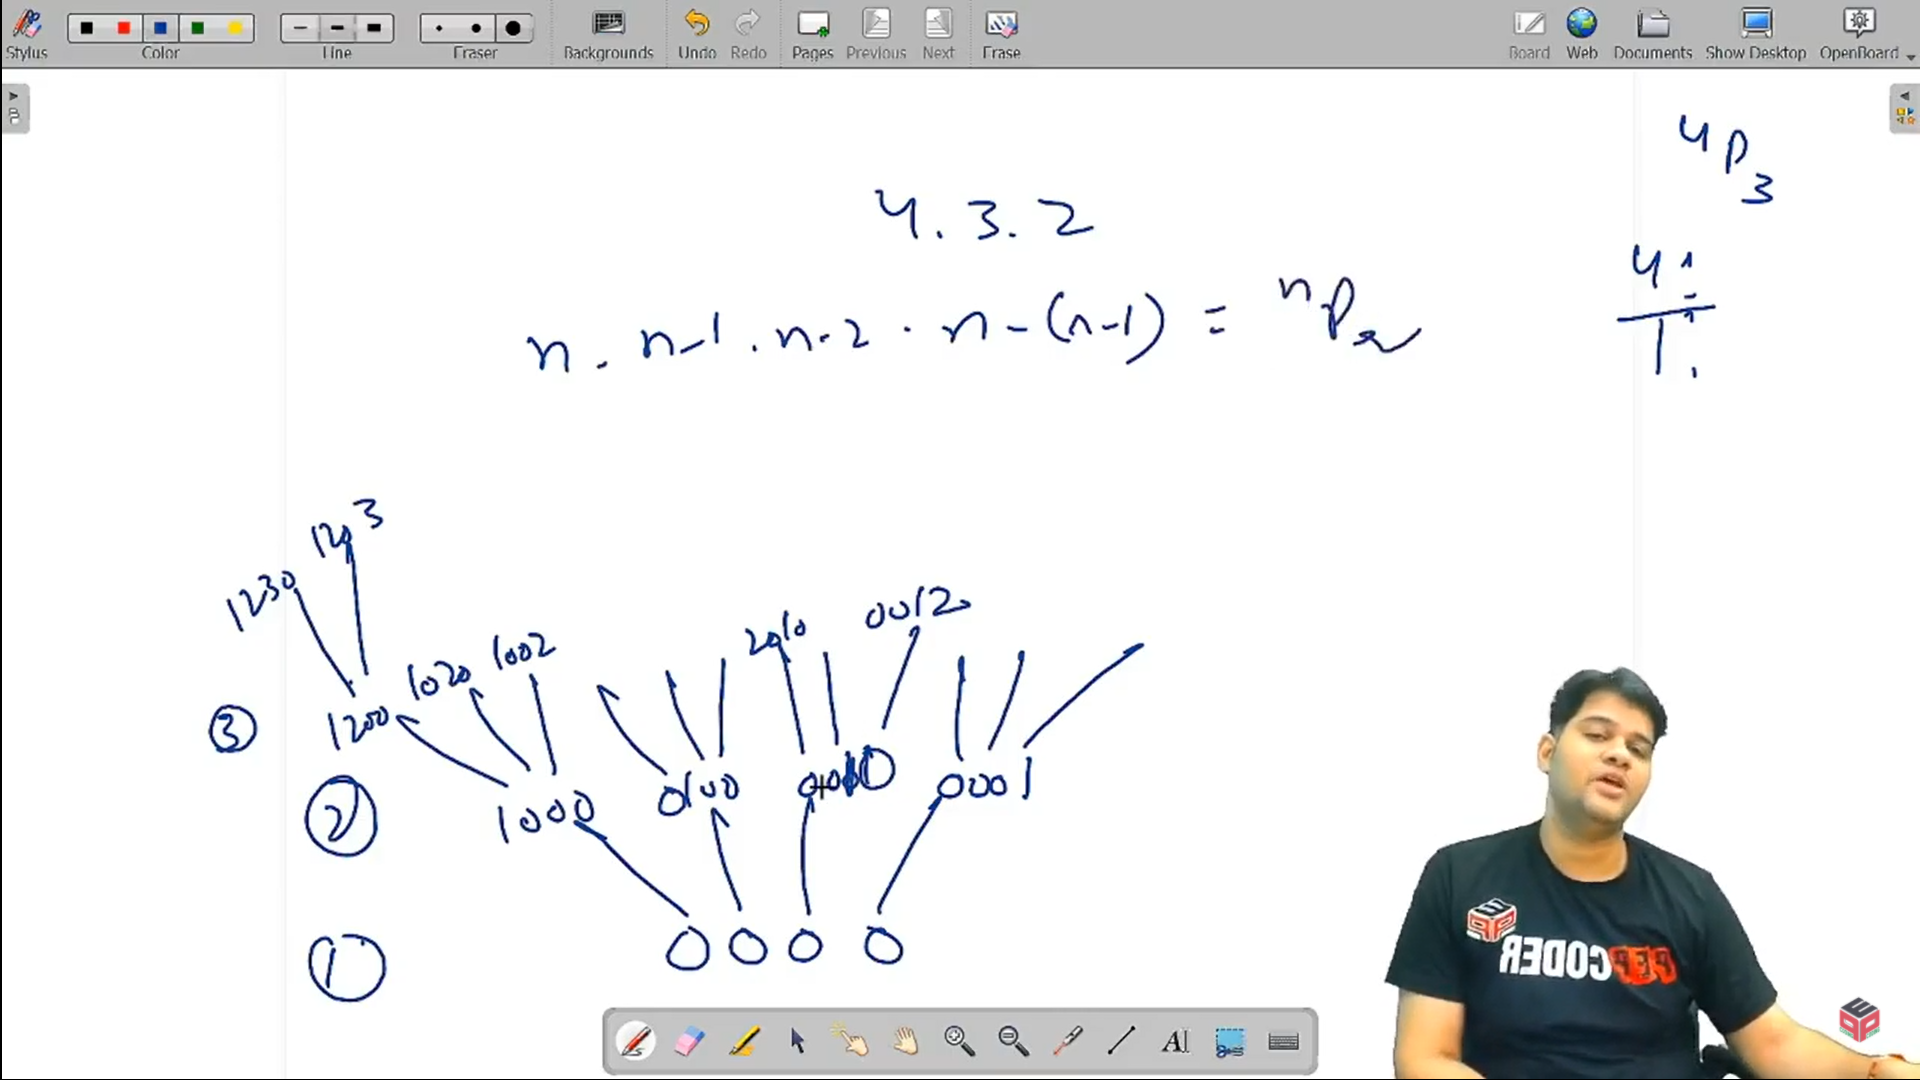 Stylus Color Line Eraser Backgrounds Undo Redo Pages Previous Next Erase Board Web Documents Show Desktop OpenBoard
4P3
4.3.2
4!
1!
n . n-1 . n-2 . n-(n-1) = nPr
1203
1230
0012
2010
1002
1020
1200
③
1000 0100 0010 0001
②
0 0 0 0
①
PEPCODER